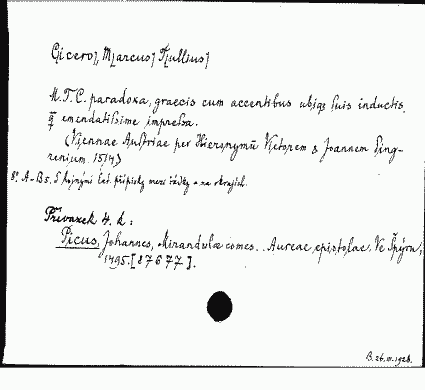 Cicero, Marcus Tullius,
M. T. C. paradoxa, graecis cum accentibus ubiqz suis inductis,
q̄ emendatissime impressa.
(Viennae Austriae per Hieronymū Vietorem & Joannem Sing-
renium. 1514)
8°. A-B5. S hojnými lat. přípisky mezi řádky a na okrajích.
Přívazek 4. k:
Picus, Johannes, Mirandulae comes. Aureae epistolae. Ve Špýru,
1495. [87677].
B. 26.III.1928.